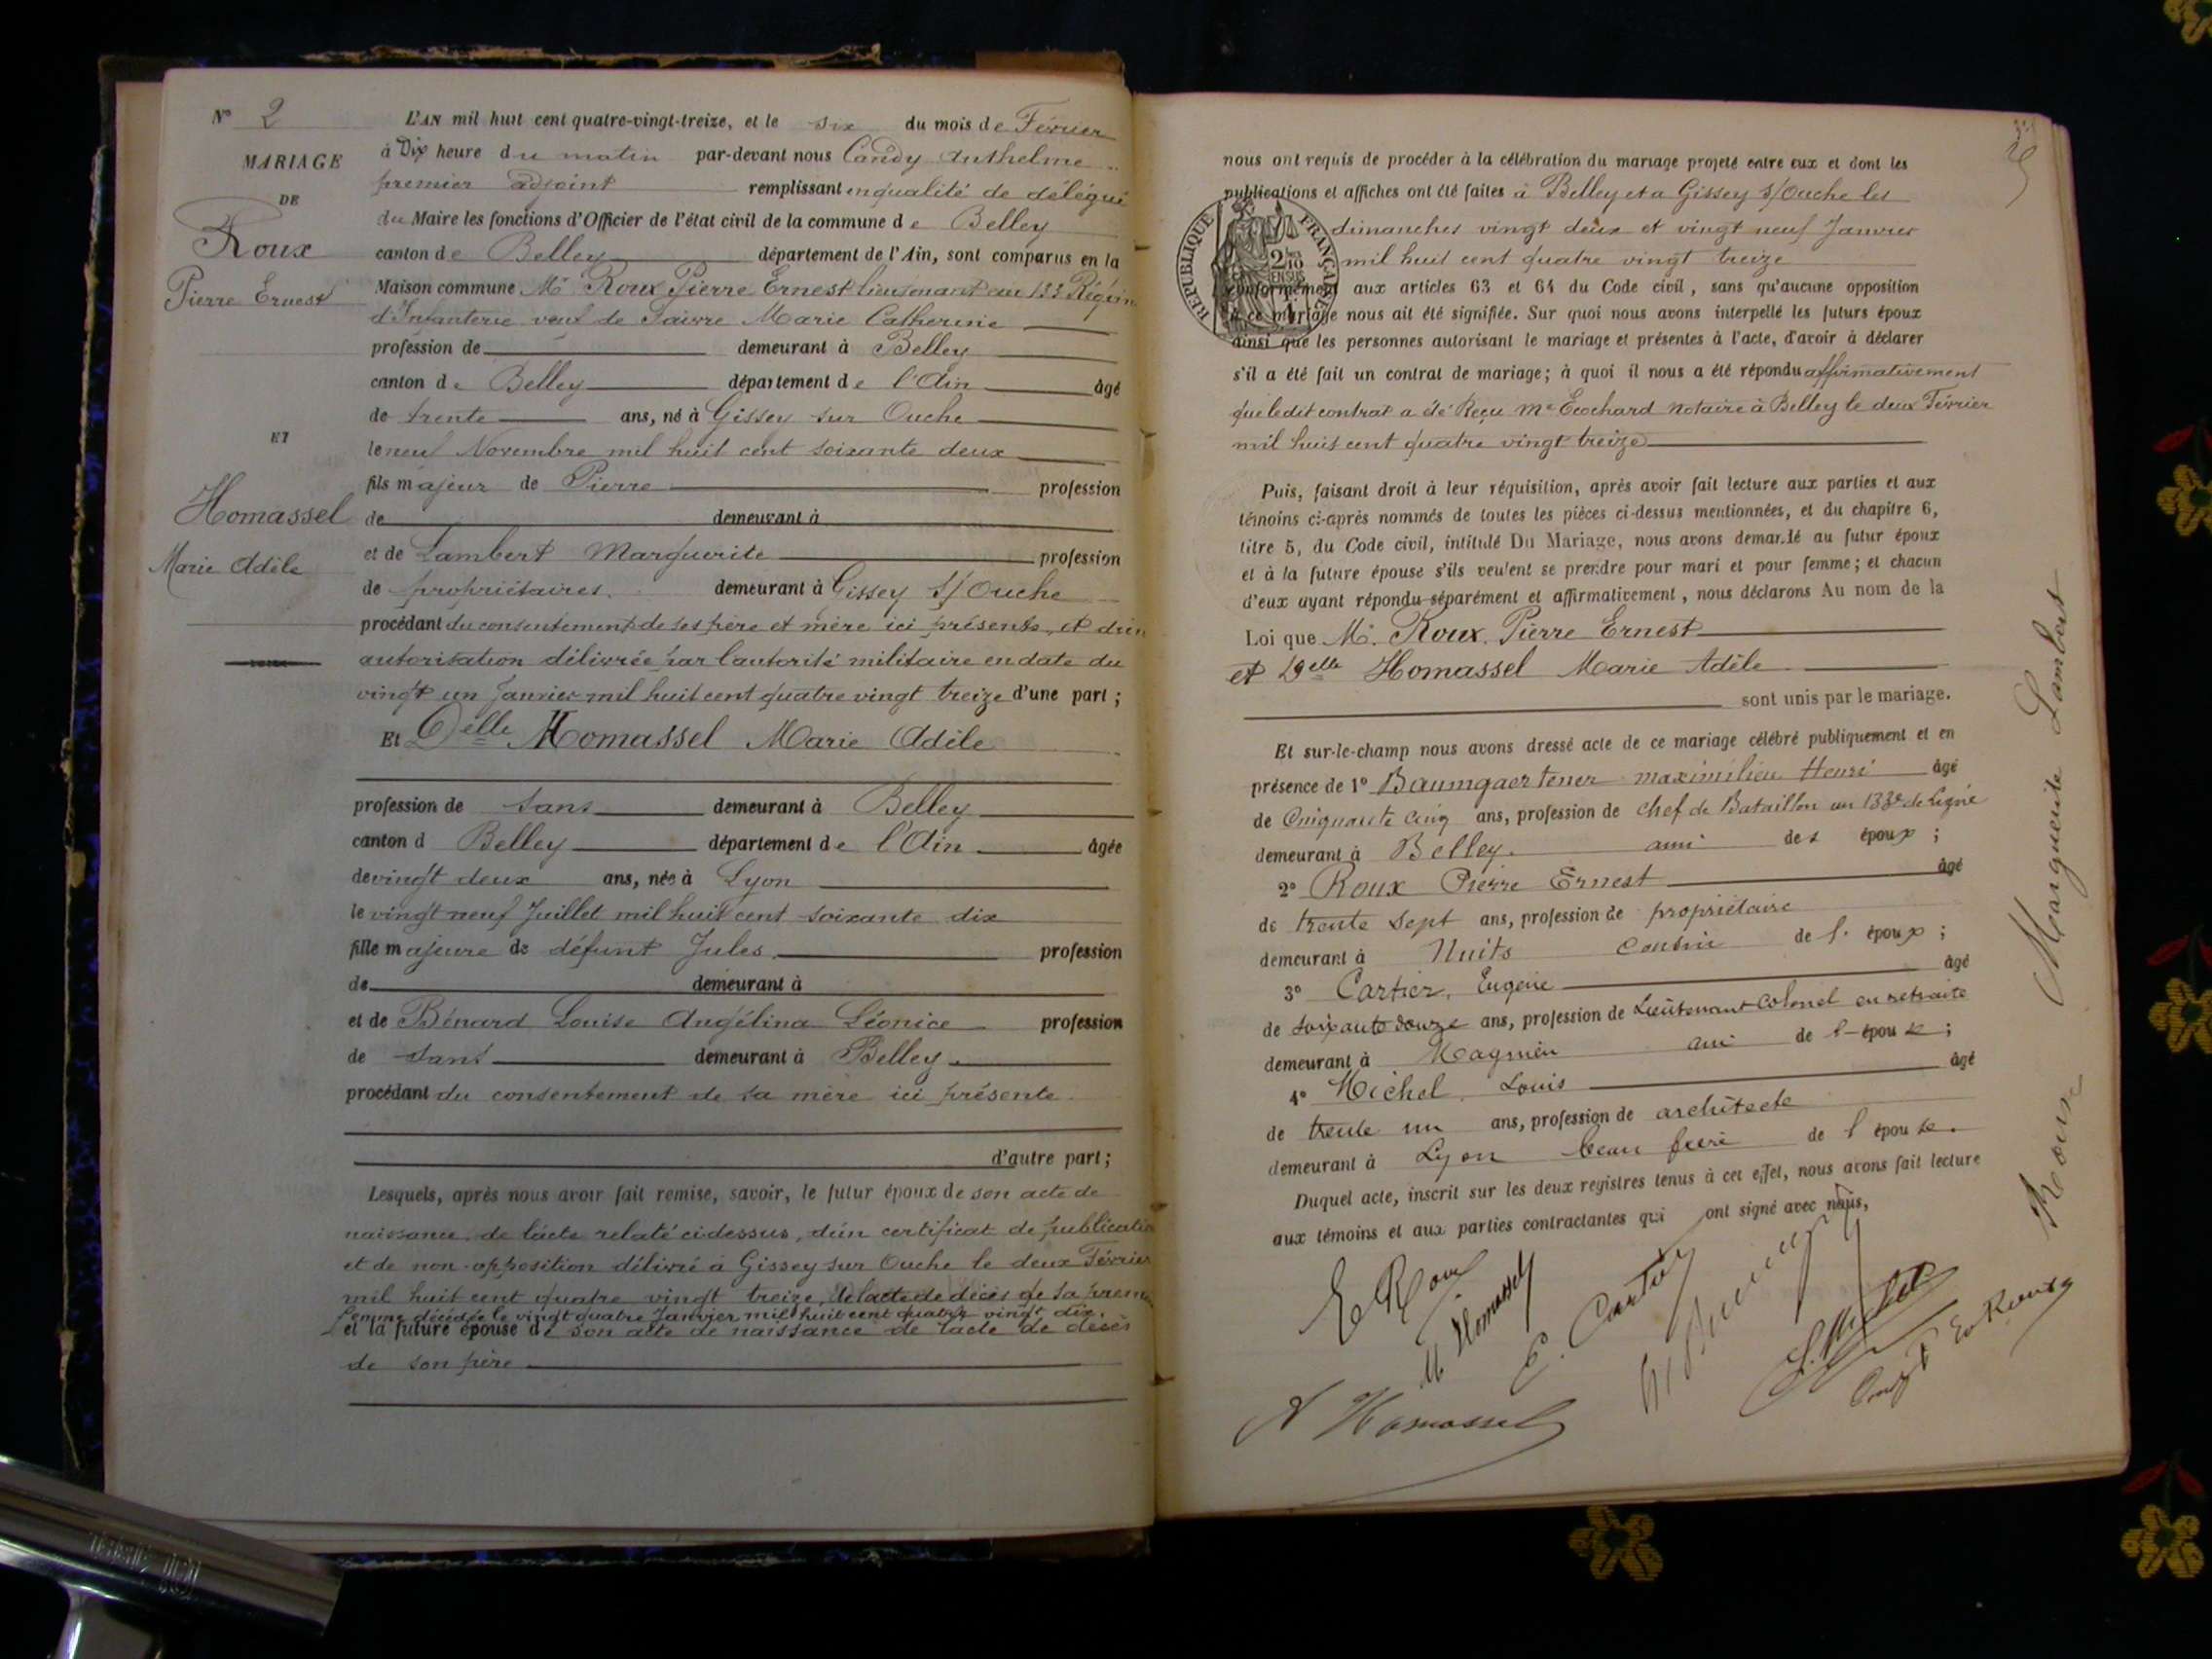 N° 2
MARIAGE
DE
Roux
Pierre Ernest
ET
Homassel
Marie Adèle
L'AN mil huit cent quatre-vingt-treize, et le six du mois de Février
à Dix heure du matin par-devant nous Candy Anthelme
premier adjoint remplissant en qualité de délégué
du Maire les fonctions d'Officier de l'état civil de la commune de Belley
canton de Belley département de l'Ain, sont comparus en la
Maison commune Mr Roux Pierre Ernest lieutenant au 133 Régim
d'Infanterie veuf de Faivre Marie Catherine
profession de demeurant à Belley
canton de Belley département de l'Ain âgé
de trente ans, né à Gissey sur Ouche
le neuf Novembre mil huit cent soixante deux
fils majeur de Pierre profession
de demeurant à
et de Lambert Marguerite profession
de propriétaires. demeurant à Gissey s/ Ouche
procédant du consentement de ses père et mère ici présents, et d'un
autorisation délivrée par l'autorité militaire en date du
vingt un Janvier mil huit cent quatre vingt treize d'une part ;
Et Delle Homassel Marie Adèle
profession de sans demeurant à Belley
canton d Belley département de l'Ain âgée
de vingt deux ans, née à Lyon
le vingt neuf Juillet mil huit cent soixante dix
fille majeure de défunt Jules. profession
de demeurant à
et de Bénard Louise Angélina Léonice profession
de sans demeurant à Belley.
procédant du consentement de sa mère ici présente.
d'autre part ;
Lesquels, après nous avoir fait remise, savoir, le futur époux de son acte de
naissance, de l'acte relaté ci-dessus, d'un certificat de publication
et de non-opposition délivré à Gissey sur Ouche le deux Février
mil huit cent quatre vingt treize, de l'acte de décès de sa prem
femme décédée le vingt quatre Janvier mil huit cent quatre vingt dix.
et la future épouse de son acte de naissance de l'acte de décès
de son père
nous ont requis de procéder à la célébration du mariage projeté entre eux et dont les
publications et affiches ont été faites à Belley et a Gissey s/ Ouche les
dimanches vingt deux et vingt neuf Janvier
mil huit cent quatre vingt treize
REPUBLIQUE FRANÇAISE
conformément aux articles 63 et 64 du Code civil, sans qu'aucune opposition
à ce mariage nous ait été signifiée. Sur quoi nous avons interpellé les futurs époux
ainsi que les personnes autorisant le mariage et présentes à l'acte, d'avoir à déclarer
s'il a été fait un contrat de mariage ; à quoi il nous a été répondu affirmativement
que le dit contrat a été Reçu Me Ecochard notaire à Belley le deux Février
mil huit cent quatre vingt treize
Puis, faisant droit à leur réquisition, après avoir fait lecture aux parties et aux
témoins ci-après nommés de toutes les pièces ci-dessus mentionnées, et du chapitre 6,
titre 5, du Code civil, intitulé Du Mariage, nous avons demandé au futur époux
et à la future épouse s'ils veulent se prendre pour mari et pour femme ; et chacun
d'eux ayant répondu séparément et affirmativement, nous déclarons Au nom de la
Loi que M. Roux. Pierre Ernest
et Delle Homassel Marie Adèle
sont unis par le mariage.
Et sur-le-champ nous avons dressé acte de ce mariage célébré publiquement et en
présence de 1° Baumgaertener maximilien Henri âgé
de Cinquante cinq ans, profession de chef de Bataillon au 133e de ligne
demeurant à Belley. ami des époux ;
2° Roux Pierre Ernest âgé
de trente sept ans, profession de propriétaire
demeurant à Nuits cousin de l' époux ;
3° Cartier, Eugène âgé
de soixante douze ans, profession de Lieutenant Colonel en retraite
demeurant à Magnieu ami de l'épouse ;
4° Michel Louis âgé
de trente un ans, profession de architecte
demeurant à Lyon beau frère de l épouse.
Duquel acte, inscrit sur les deux registres tenus à cet effet, nous avons fait lecture
aux témoins et aux parties contractantes qui ont signé avec nous,
E Roux
M. Homassel
E. Cartier
L. Michel
Ert Roux
A Homassel
Roux Marguerite Lambert